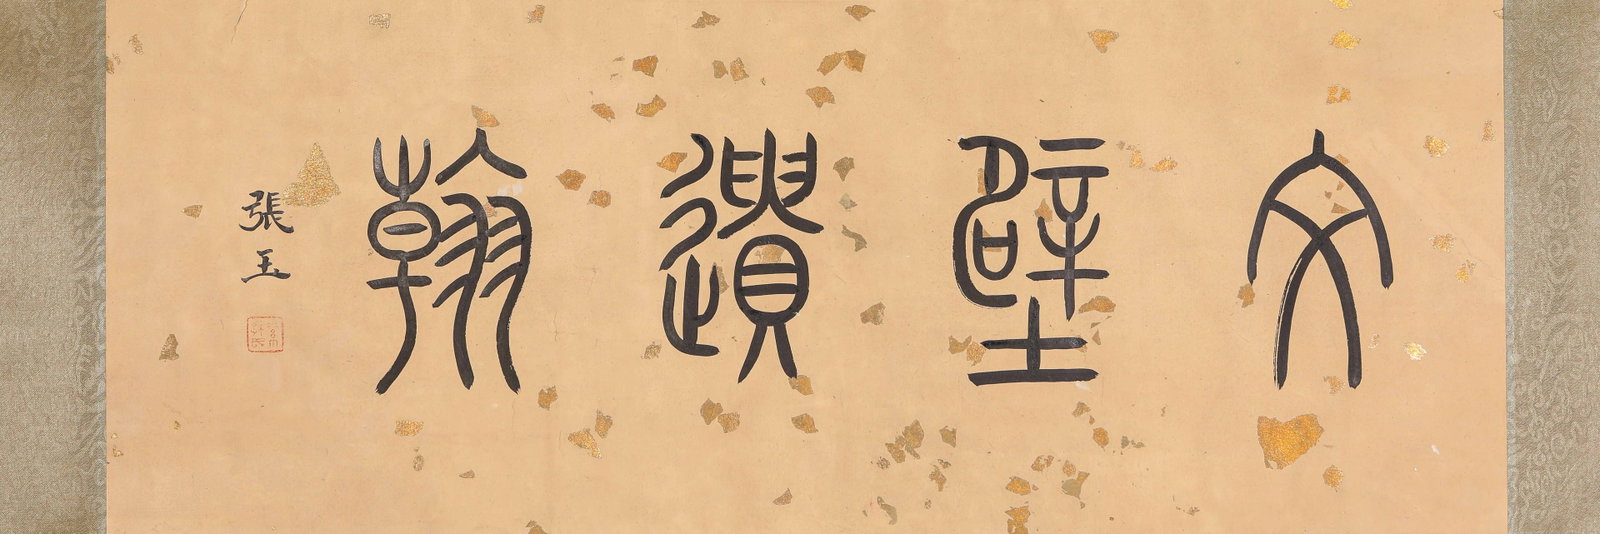 文壁遺翰
張玉